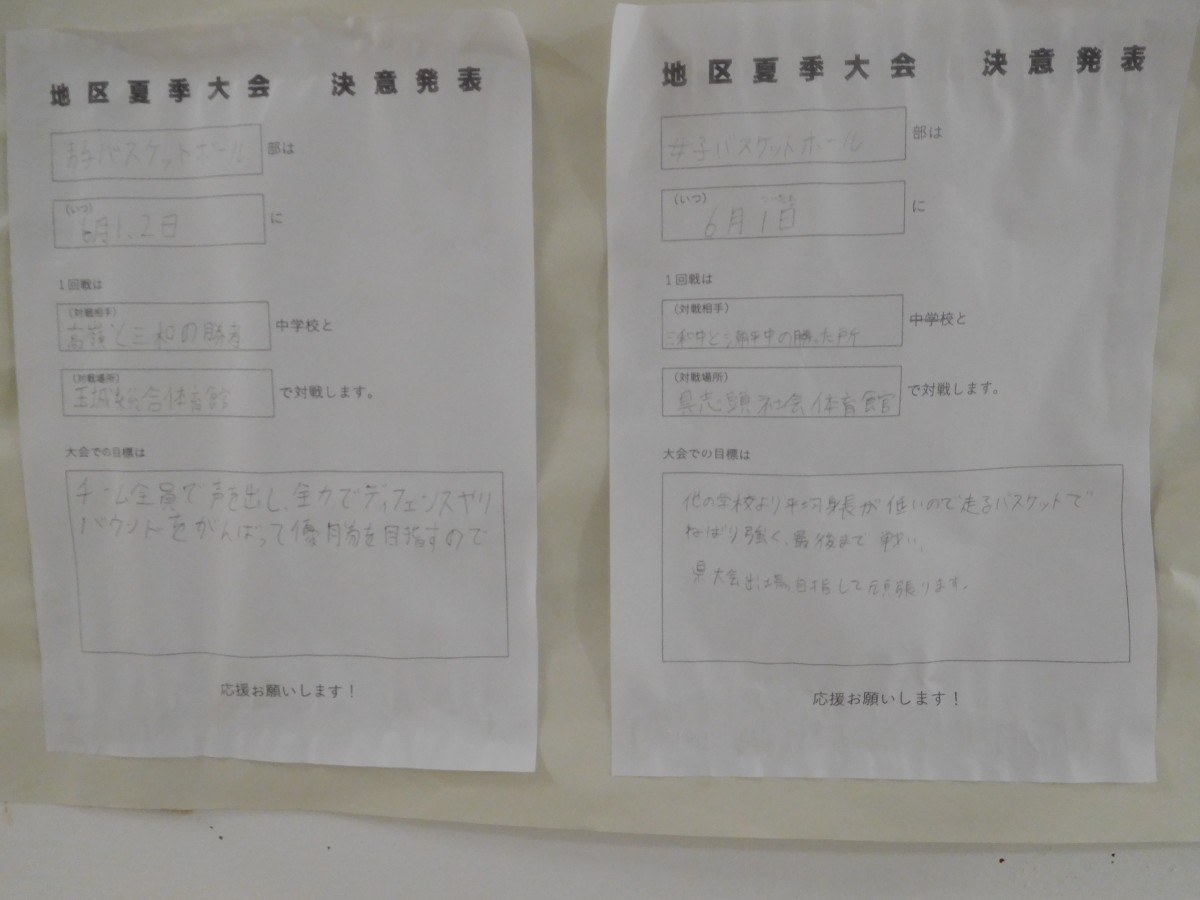 地区夏季大会 決意発表
男子バスケットボール 部は
(いつ)
6月1、2日 に
1回戦は
(対戦相手)
高嶺と三和の勝者 中学校と
(対戦場所)
玉城総合体育館 で対戦します。
大会での目標は
チーム全員で声を出し、全力でディフェンスやリ
バウンドをがんばって優勝を目指すので
応援お願いします!
地区夏季大会 決意発表
女子バスケットボール 部は
(いつ) ついたち
6月1日 に
1回戦は
(対戦相手)
三和中と 中の勝った所 中学校と
(対戦場所)
具志頭社会体育館 で対戦します。
大会での目標は
他の学校より平均身長が低いので走るバスケットで
ねばり強く、最後まで戦い、
県大会出場目指して頑張ります。
応援お願いします!